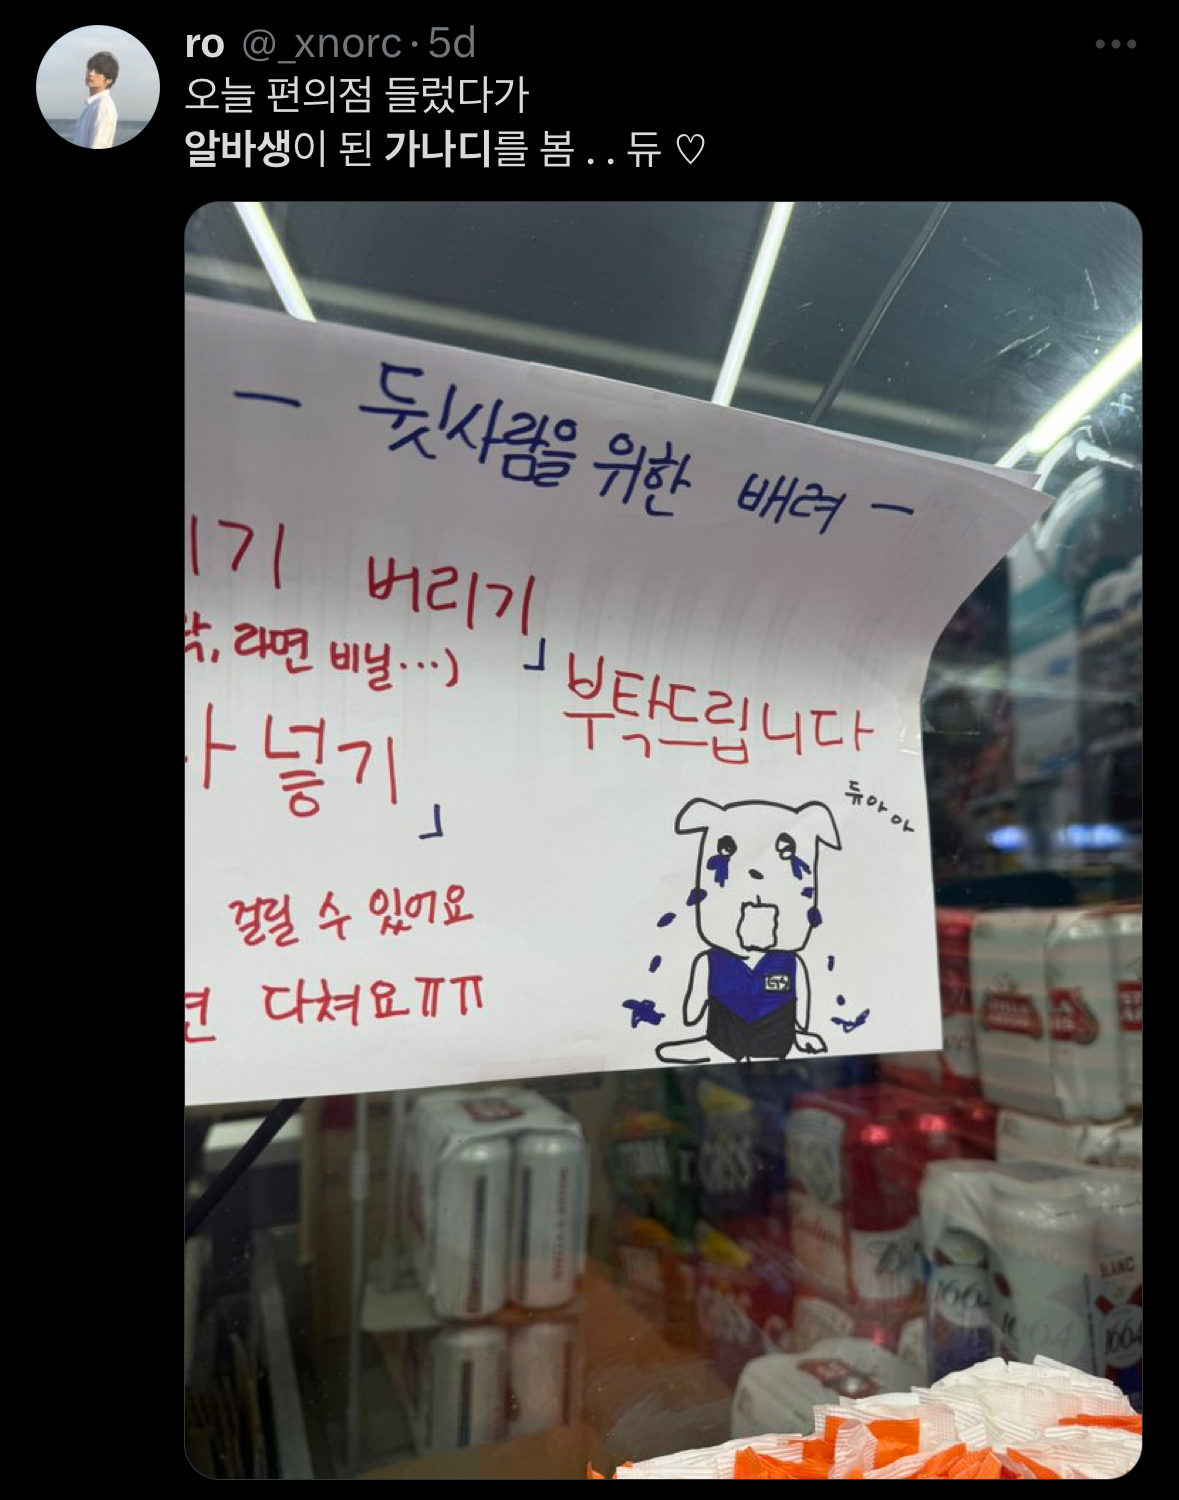 ro @_xnorc · 5d
오늘 편의점 들렀다가
알바생이 된 가나디를 봄 . . 듀 ♡
— 뒷사람을 위한 배려 —
기 버리기」
, 라면 비닐...)
부탁드립니다
넣기」
듀아아
걸릴 수 있어요
다쳐요ㅠㅠ
GS
BLANC
1664
1664